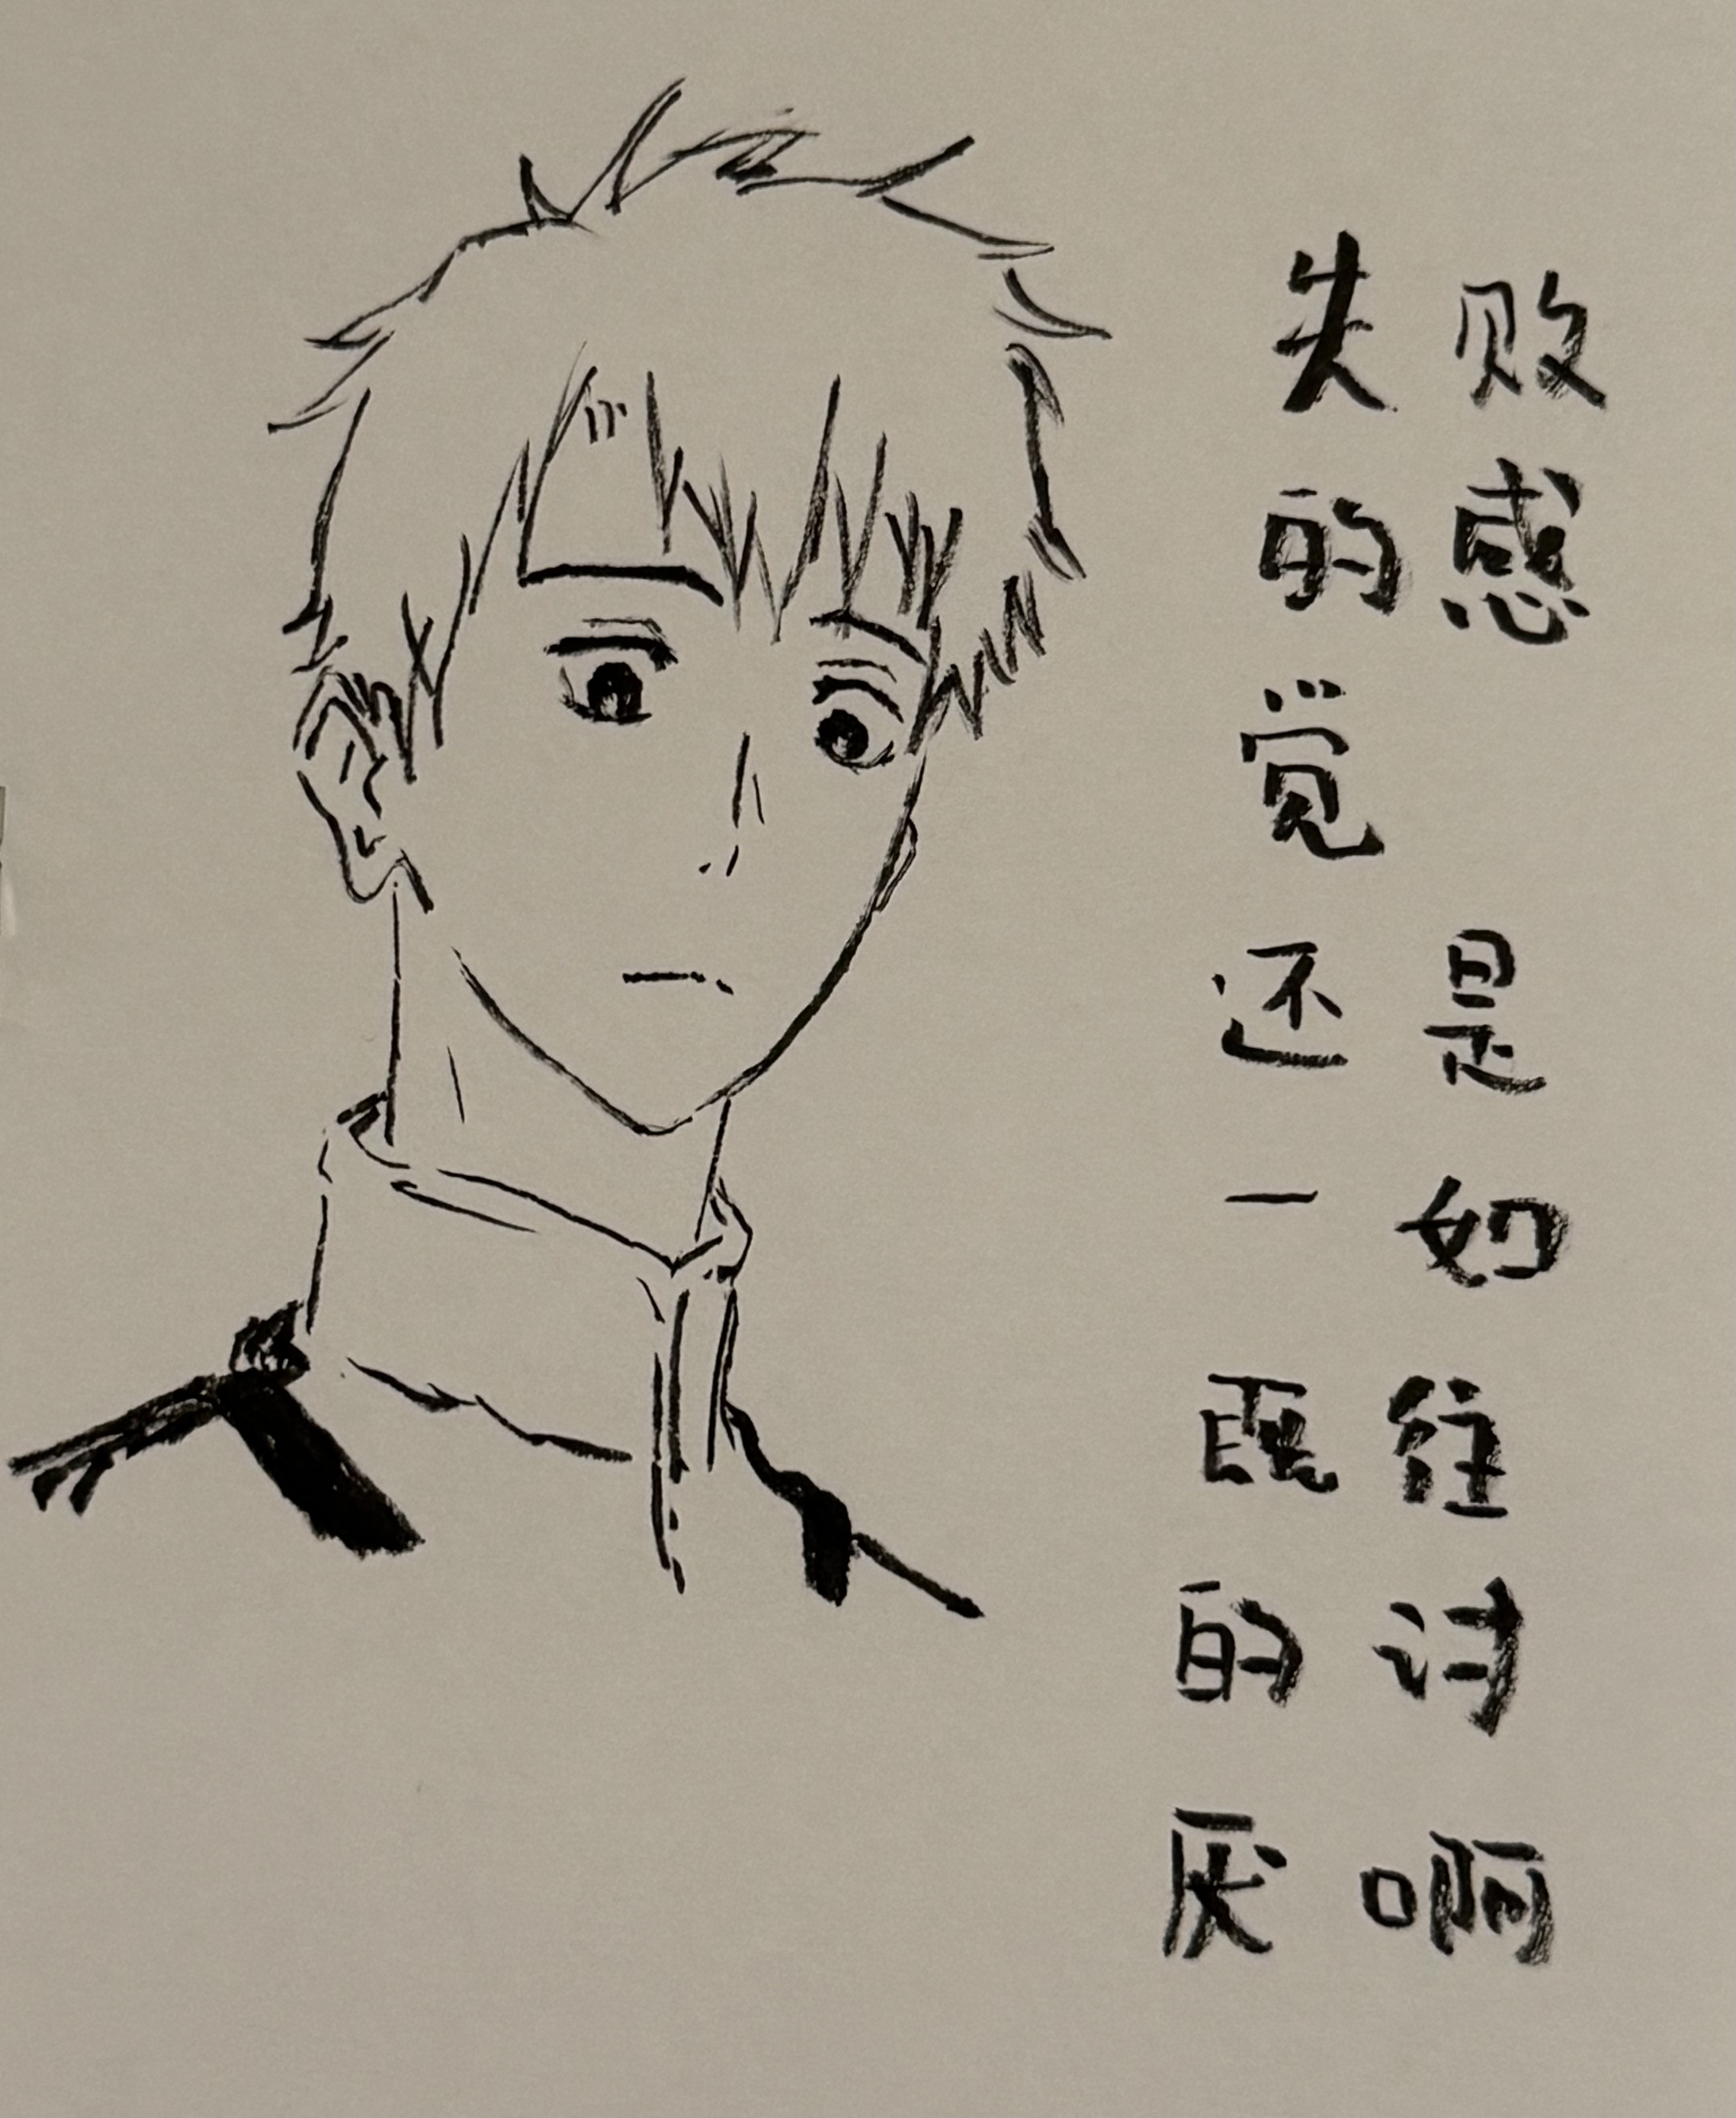 失败
的感
觉
还是
一如
既往
的讨
厌啊